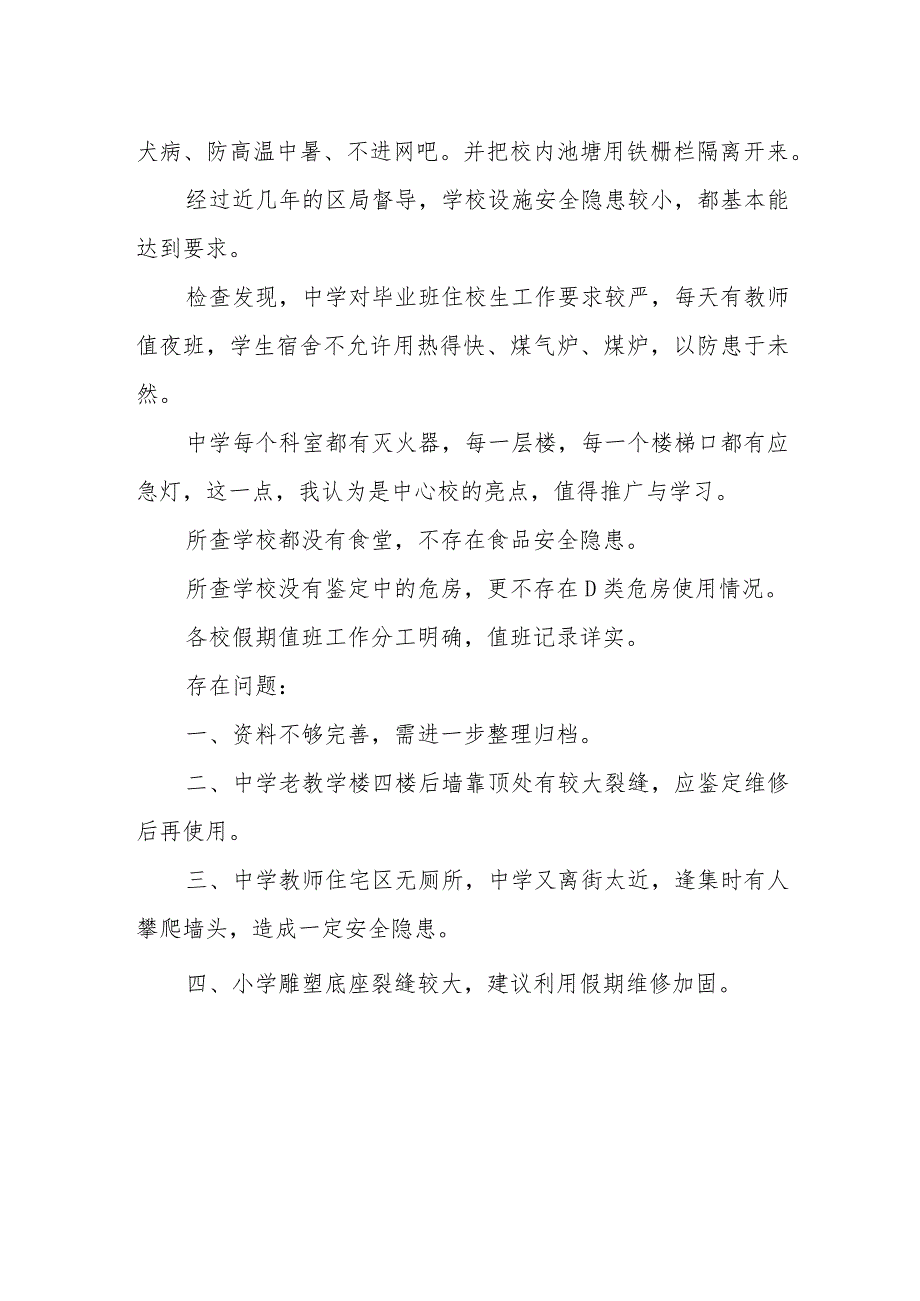 犬病、防高温中暑、不进网吧。并把校内池塘用铁栅栏隔离开来。
经过近几年的区局督导，学校设施安全隐患较小，都基本能
达到要求。
检查发现，中学对毕业班住校生工作要求较严，每天有教师
值夜班，学生宿舍不允许用热得快、煤气炉、煤炉，以防患于未
然。
中学每个科室都有灭火器，每一层楼，每一个楼梯口都有应
急灯，这一点，我认为是中心校的亮点，值得推广与学习。
所查学校都没有食堂，不存在食品安全隐患。
所查学校没有鉴定中的危房，更不存在 D 类危房使用情况。
各校假期值班工作分工明确，值班记录详实。
存在问题：
一、资料不够完善，需进一步整理归档。
二、中学老教学楼四楼后墙靠顶处有较大裂缝，应鉴定维修
后再使用。
三、中学教师住宅区无厕所，中学又离街太近，逢集时有人
攀爬墙头，造成一定安全隐患。
四、小学雕塑底座裂缝较大，建议利用假期维修加固。